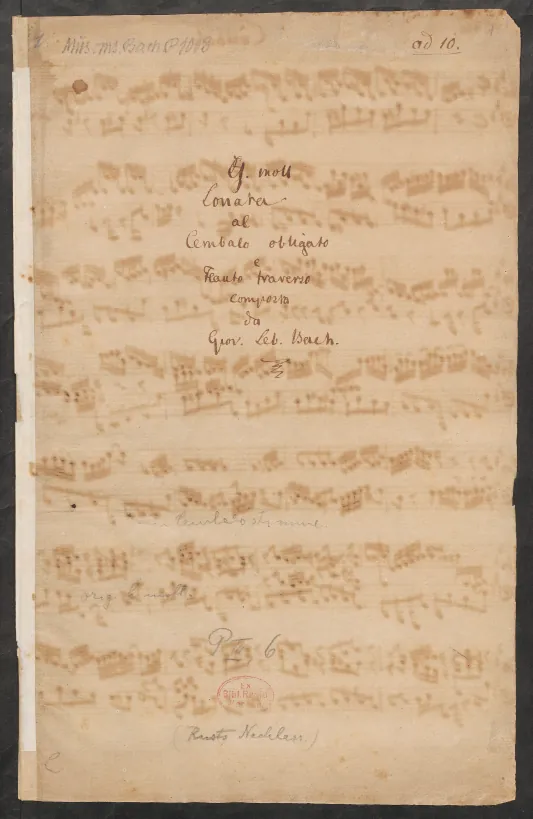 Mus. ms. Bach P 1018
ad 10.
G. moll
Sonata
al
Cembalo obligato
e
Flauto traverso
composta
da
Giov. Seb. Bach.
Cembalostimme.
orig
P II, 6
(Rusts Nachlass.)